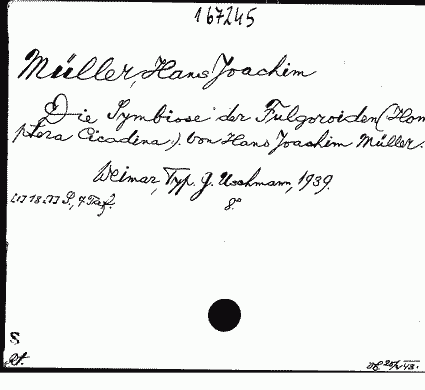 167245
Müller, Hans Joachim
Die Symbiose der Fulgoroiden (Hom
ptera Cicadina). Von Hans Joachim Müller.
Weimar, Typ. G. Uschmann, 1939.
8°
S., 4 Taf.
S